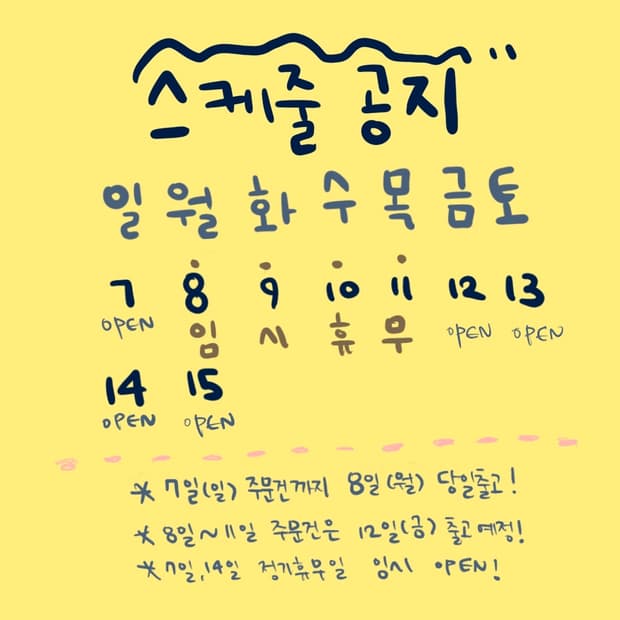 스케줄 공지
일 월 화 수 목 금 토
7 8 9 10 11 12 13
OPEN 임 시 휴 무 OPEN OPEN
14 15
OPEN OPEN
* 7일(일) 주문건까지 8일(월) 당일출고!
* 8일~11일 주문건은 12일(금) 출고예정!
* 7일, 14일 정기휴무일 임시 OPEN!